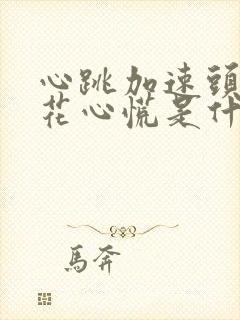 心跳加速頭
花心慌是什
馬奔